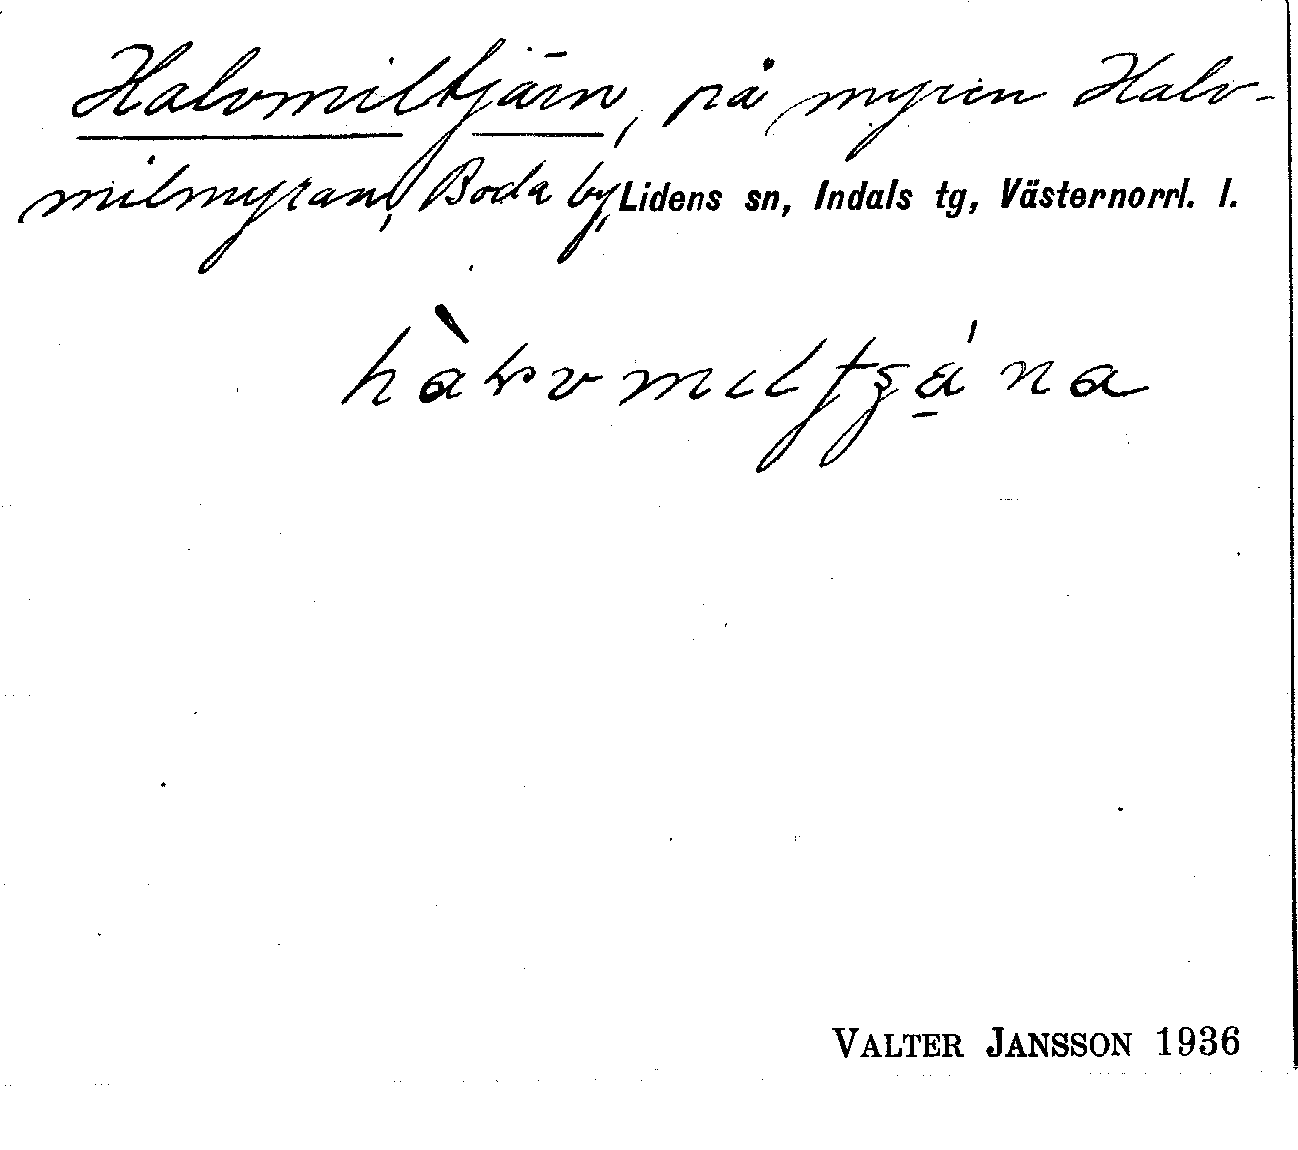 Halvmiltjärn, på myren Halv-
milmyran, Boda by, Lidens sn, Indals tg, Västernorrl. l.
VALTER JANSSON 1936